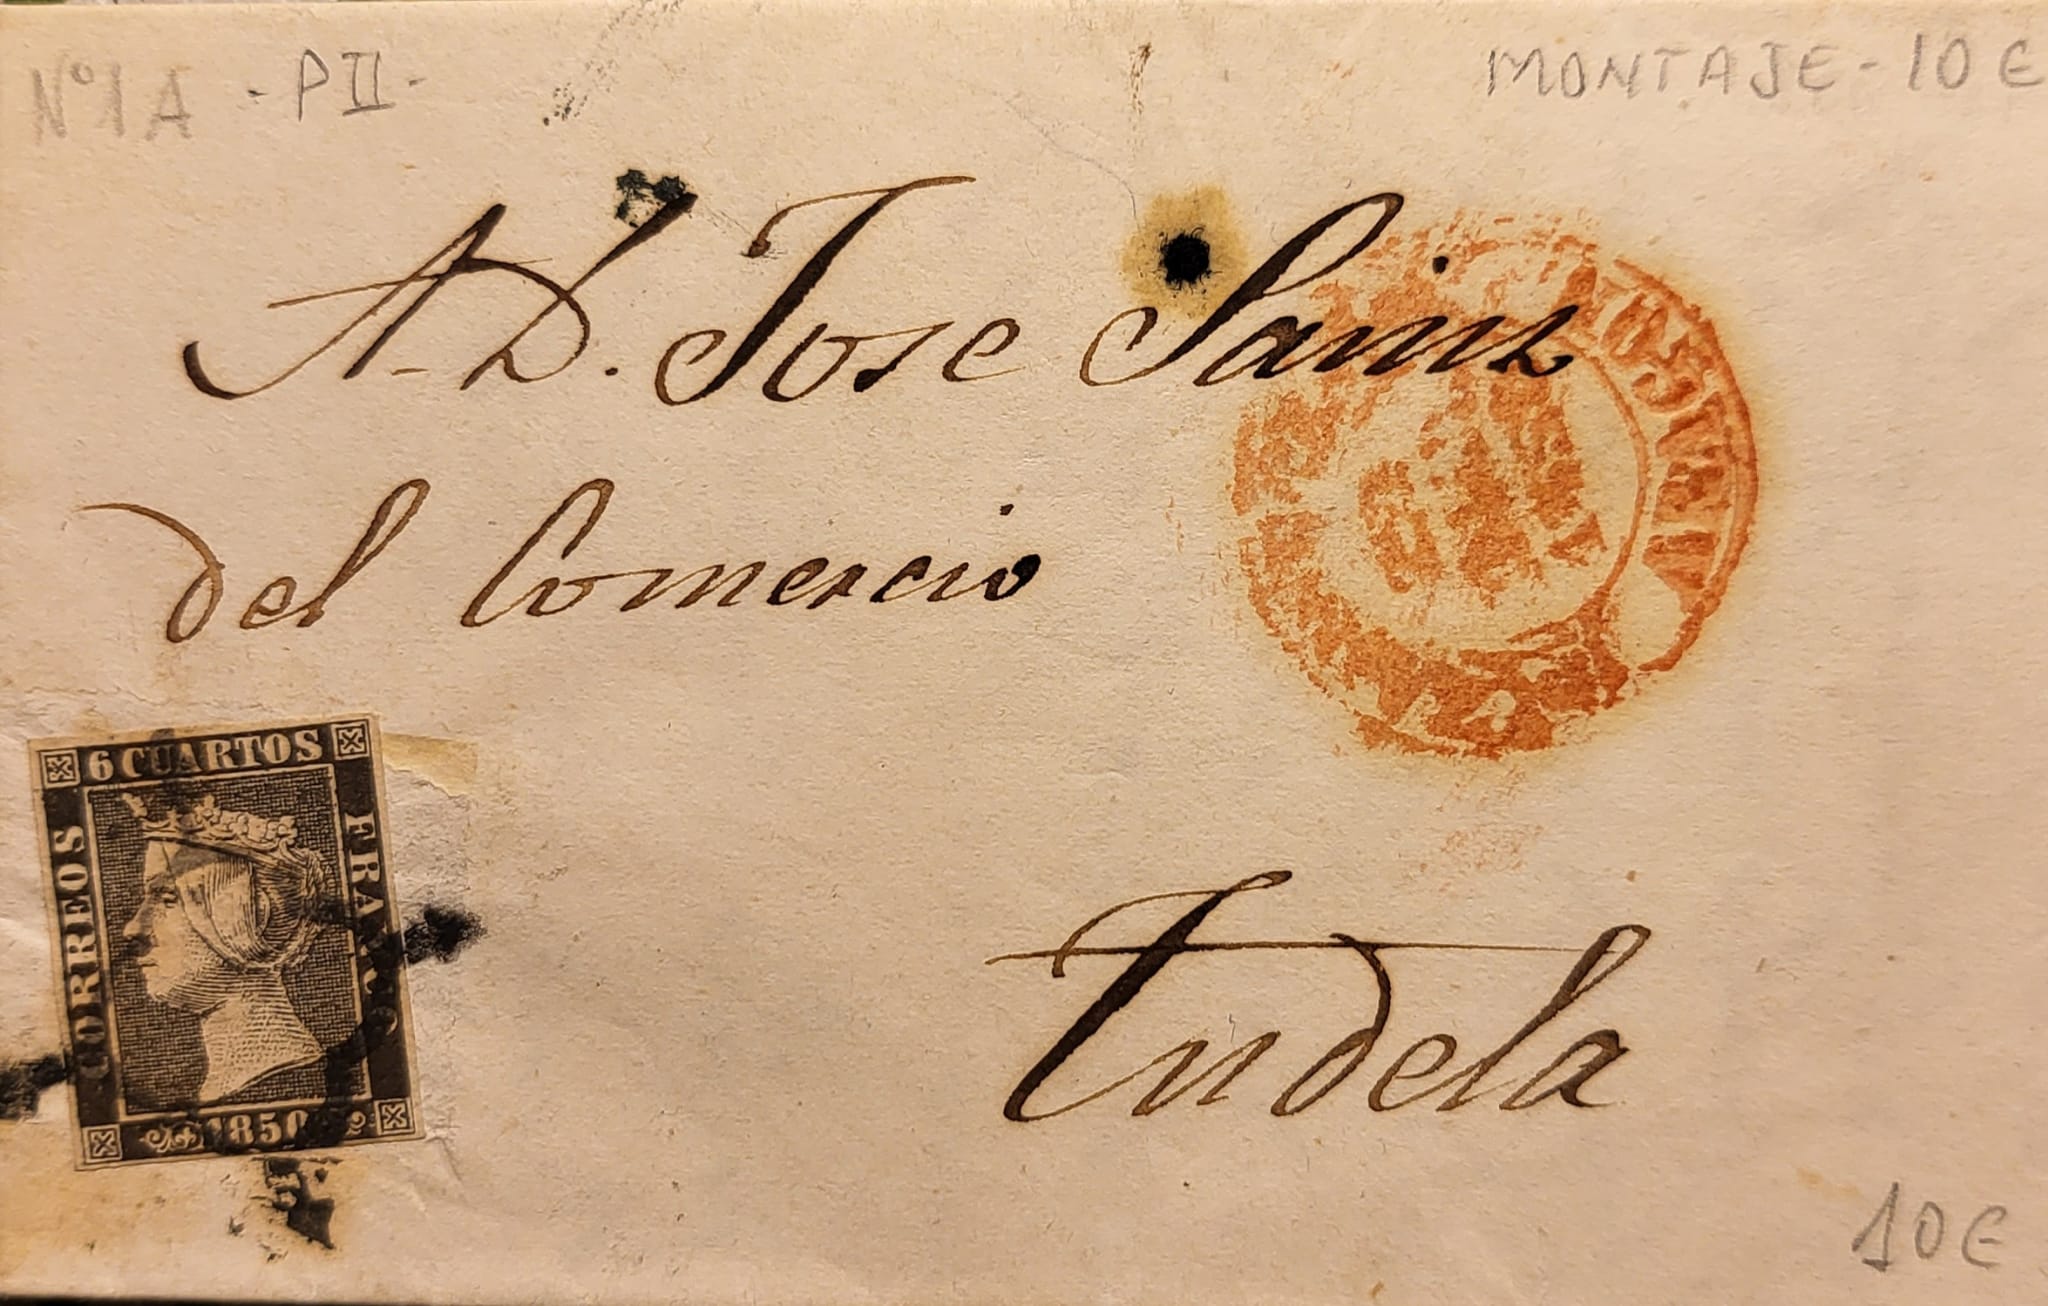 Nº 1A - PII -
MONTAJE - 10 €
A D. Jose Sainz
del Comercio
6 CUARTOS
CORREOS
FRANCO
1850
Tudela
10 €